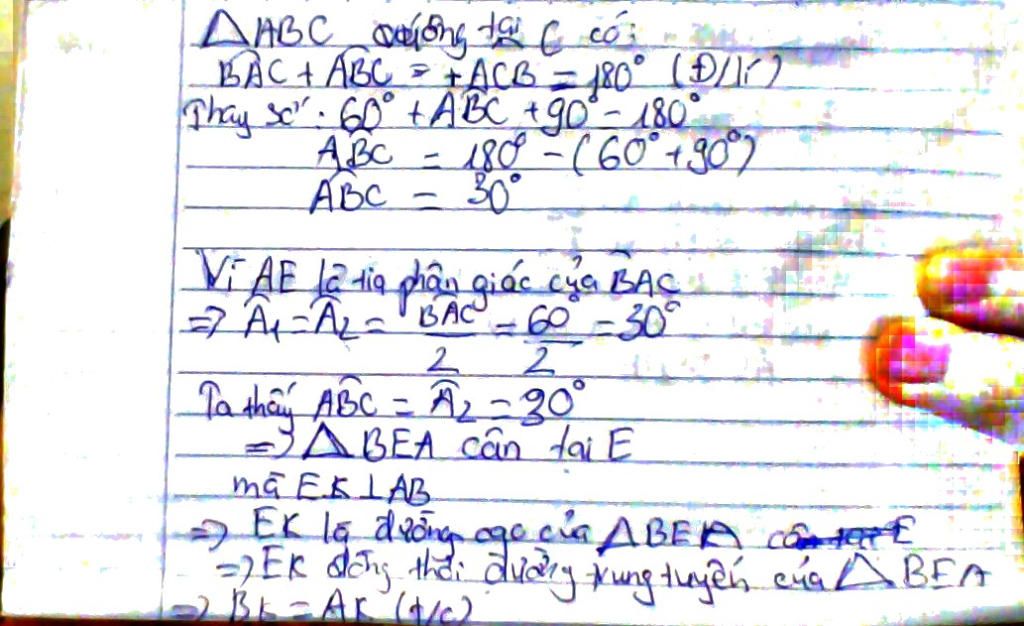 △ABC vuông tại C có:
BÂC + ABC = + ACB = 180° (Đ/lí)
Thay số: 60° + ABC + 90° - 180°
ABC = 180° - (60° + 90°)
ABC = 30°
Vì AE là tia phân giác của BAC
=> Â₁ = Â₂ = BAC/2 = 60°/2 = 30°
Ta thấy ABC = Â₂ = 30°
=> △BEA cân tại E
mà EK ⊥ AB
=> EK là đường cao của △BEA
=> EK đồng thời đường trung tuyến của △BEA
=> BK = AK (t/c)